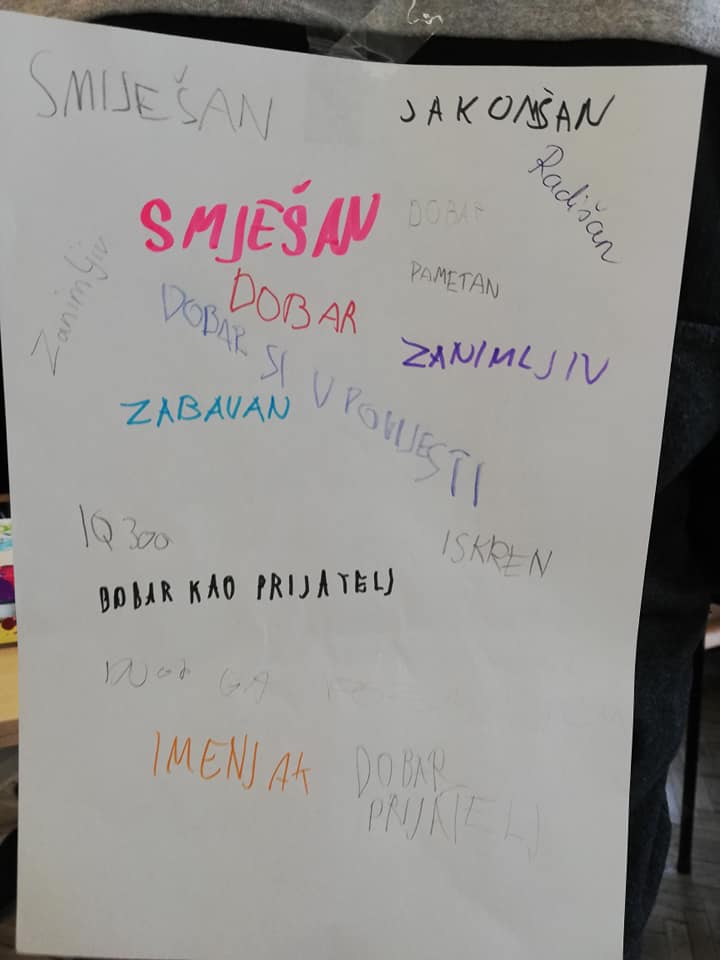 SMIJEŠAN
JAKOMŠAN
Radišan
SMJEŠAN
DOBAR
Zanimljiv
DOBAR
PAMETAN
DOBAR SI U POVIJESTI
ZANIMLJIV
ZABAVAN
IQ 300
ISKREN
DOBAR KAO PRIJATELJ
GA
IMENJAK
DOBAR
PRIJATELJ